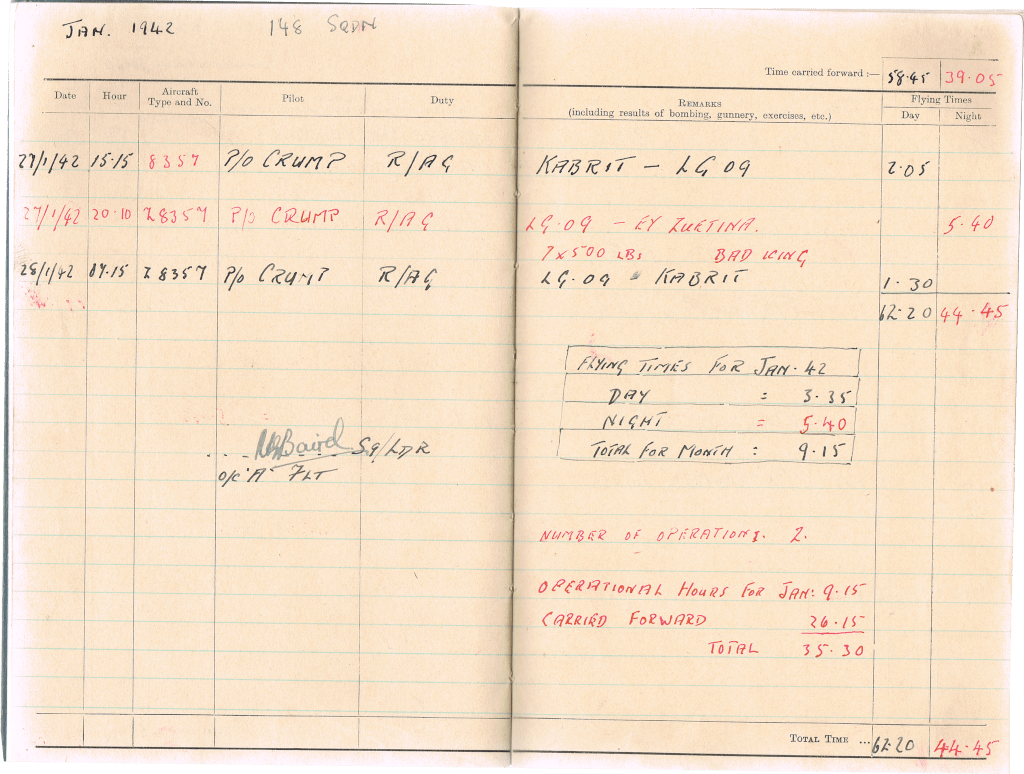 JAN. 1942 148 SQDN
Time carried forward :— 58.45 39.05
Date Hour Aircraft Type and No. Pilot Duty REMARKS (including results of bombing, gunnery, exercises, etc.) Flying Times
Day Night
27/1/42 15.15 8357 P/O CRUMP R/AG KABRIT — LG 09 2.05
27/1/42 20.10 Z8357 P/O CRUMP R/AG LG.09 — EY ZUETINA. 5.40
7 x 500 LBS BAD ICING
28/1/42 07.15 Z8357 P/O CRUMP R/AG LG.09 - KABRIT 1.30
62.20 44.45
FLYING TIMES FOR JAN. 42
DAY = 3.35
NIGHT = 5.40
TOTAL FOR MONTH : 9.15
Baird SQ/LDR
O/C "A" FLT
NUMBER OF OPERATIONS. 2.
OPERATIONAL HOURS FOR JAN: 9.15
CARRIED FORWARD 26.15
TOTAL 35.30
TOTAL TIME ... 62.20 44.45